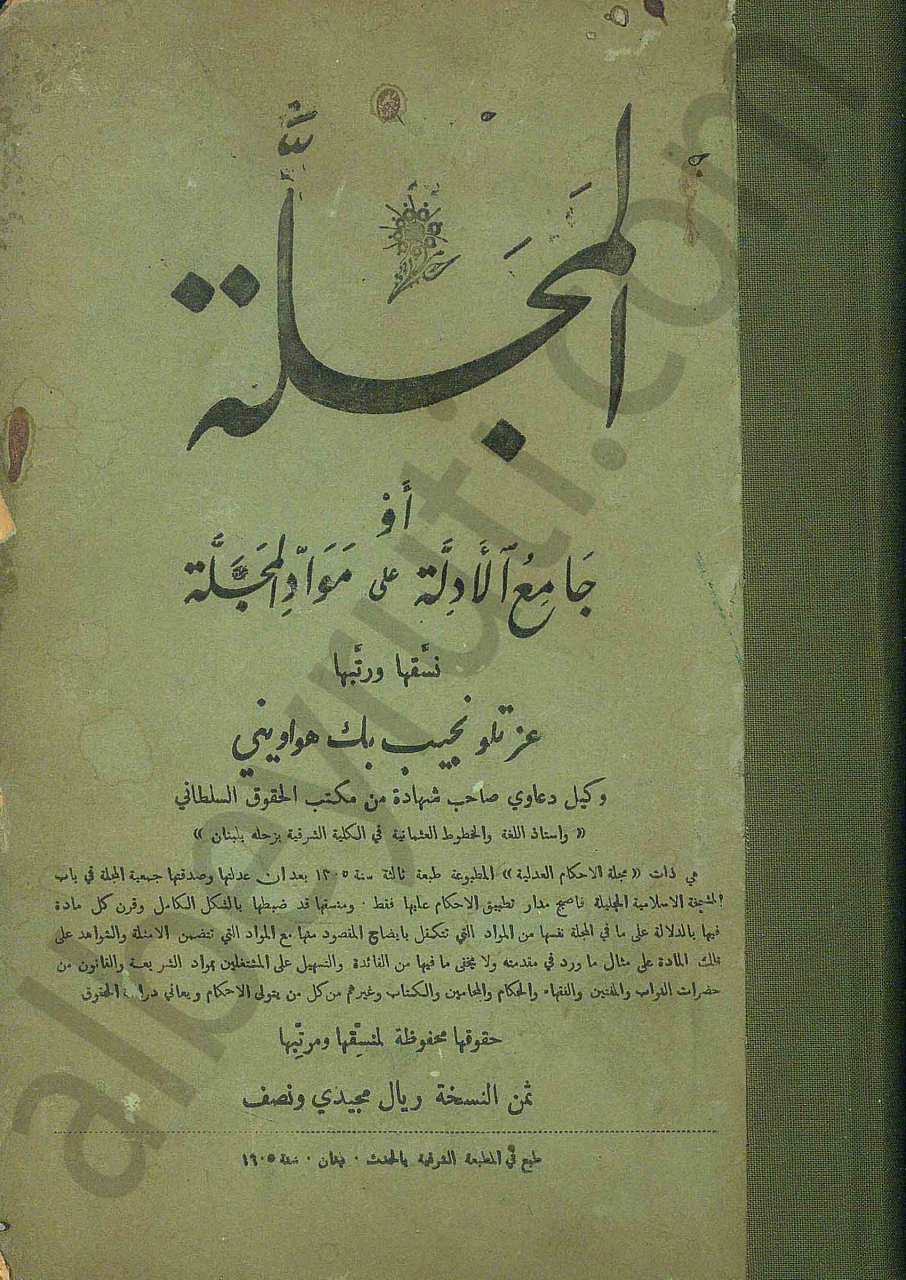 المَجَلَّة
أَوْ
جَامِعُ ٱلْأَدِلَّة على مَوَادِّ المَجَلَّة
نسَّقها ورتَّبها
عزتلو نجيب بك هواويني
وكيل دعاوي صاحب شهادة من مكتب الحقوق السلطاني
« واستاذ اللغة والخطوط العثمانية في الكلية الشرقية بزحله بلبنان »
هي ذات « مجلة الاحكام العدلية » المطبوعة طبعة ثالثة سنة ١٣٠٥ بعد ان عدلتها وصدقتها جمعية المجلة في باب
المشيخة الاسلامية الجليلة فاصبح مدار تطبيق الاحكام عليها فقط · ومنسقها قد ضبطها بالشكل الكامل وقرن كل مادة
فيها بالدلالة على ما في المجلة نفسها من المواد التي تتكفل بايضاح المقصود منها مع المواد التي تتضمن الامثلة والشواهد على
تلك المادة على مثال ما ورد في مقدمته ولا يخفى ما فيها من الفائدة والتسهيل على المشتغلين بمواد الشريعة والقانون من
حضرات النواب والمفتين والفقهاء والحكام والمحامين والكتاب وغيرهم من كل من يتولى الاحكام ويعاني دراسة الحقوق
حقوقها محفوظة لمنسِّقها ومرتِّبها
ثمن النسخة ريال مجيدي ونصف
طبع في المطبعة الشرقية بالحدث · لبنان · سنة ١٩٠٥
albeyruti.com